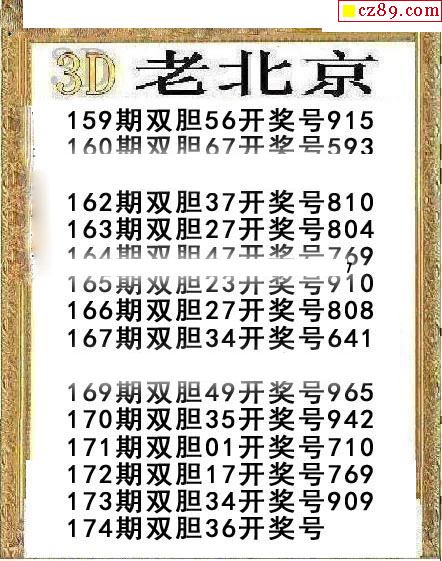 cz89.com
3D 老北京
159期双胆56开奖号915
160期双胆67开奖号593
162期双胆37开奖号810
163期双胆27开奖号804
164期双胆47开奖号769
165期双胆23开奖号910
166期双胆27开奖号808
167期双胆34开奖号641
169期双胆49开奖号965
170期双胆35开奖号942
171期双胆01开奖号710
172期双胆17开奖号769
173期双胆34开奖号909
174期双胆36开奖号